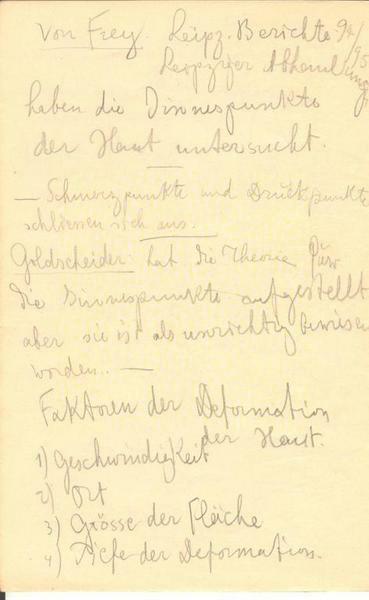 Von Frey. Leipz. Berichte 94/95
Leipziger Abhandlung
haben die Sinnespunkte
der Haut untersucht.
— Schmerzpunkte und Druckpunkte
schliessen sich aus.
Goldscheider: hat die Theorie
die Sinnespunkte aufgestellt
aber sie ist als unrichtig bewiesen
worden. —
Faktoren der Deformation
der Haut.
1) Geschwindigkeit
2) Ort
3) Grösse der Fläche
4) Tiefe der Deformation.